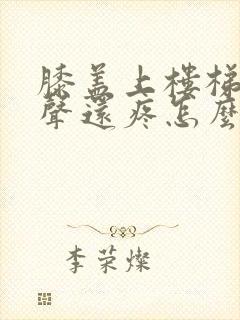 膝盖上樓梯
聲還疼怎麼
李荣燦